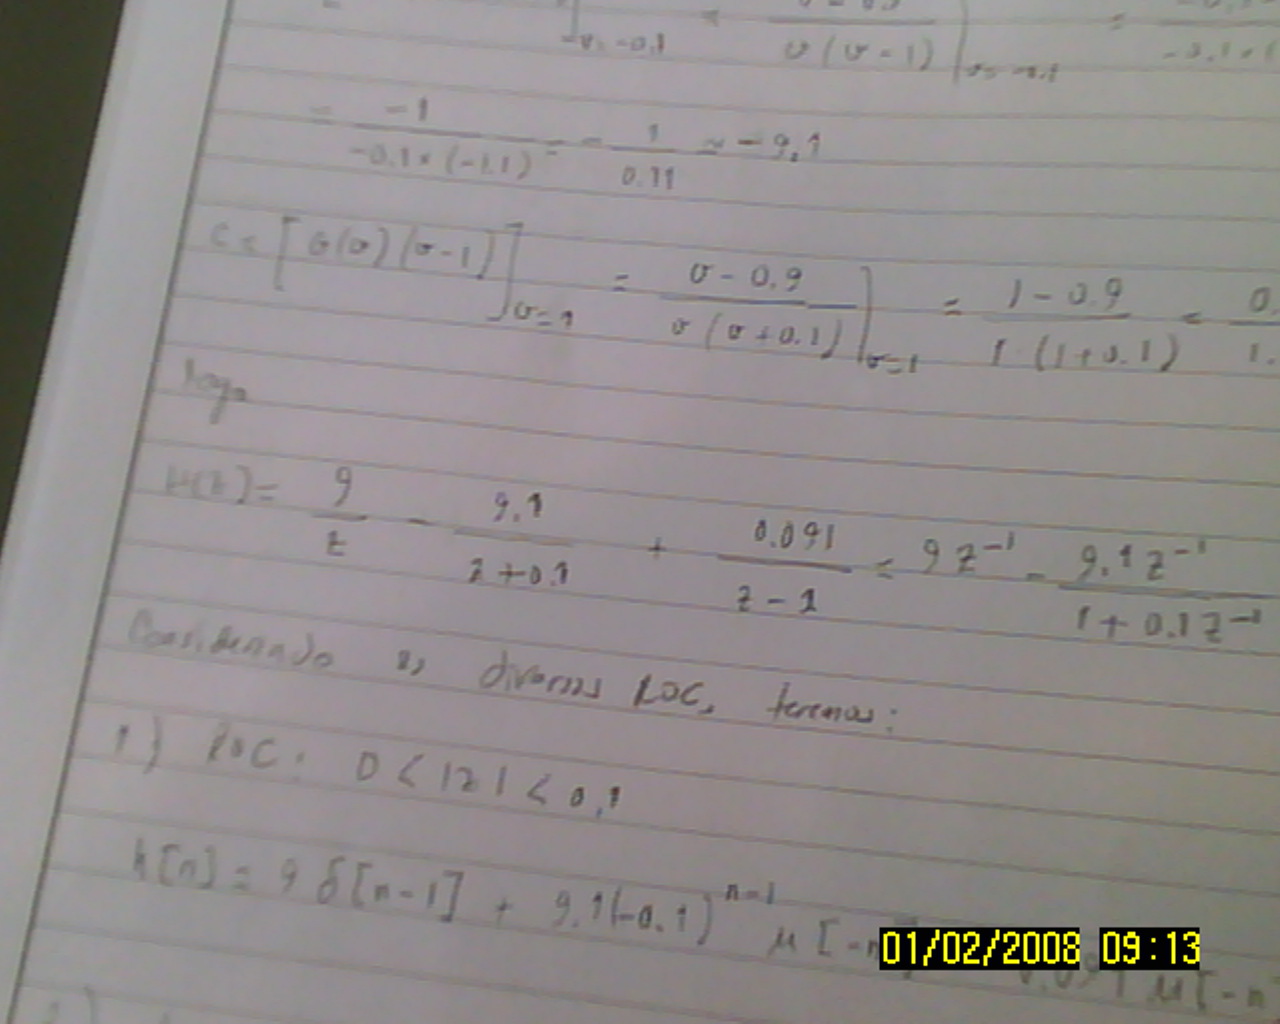 v = -0.1 v (v - 1) v = -0.1 = -0.1 × (
= -1 / -0.1 × (-1.1) = - 1 / 0.11 ≃ -9,1
C = [G(v) (v-1)] v=1 = v - 0.9 / v (v + 0.1) ] v=1 = 1 - 0.9 / 1 · (1 + 0.1) = 0. / 1.
Logo
H(z) = 9 / z - 9.1 / z + 0.1 + 0.091 / z - 1 = 9 z⁻¹ - 9.1 z⁻¹ / 1 + 0.1 z⁻¹
Considerando as diversas ROC, teremos:
1) ROC: 0 < |z| < 0,1
h[n] = 9 δ[n-1] + 9.1(-0.1)ⁿ⁻¹ μ [-n 0.091 μ[-n
01/02/2008 09:13